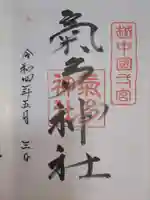 越中國一宮
氣多神社
氣多神社
令和四年五月三日